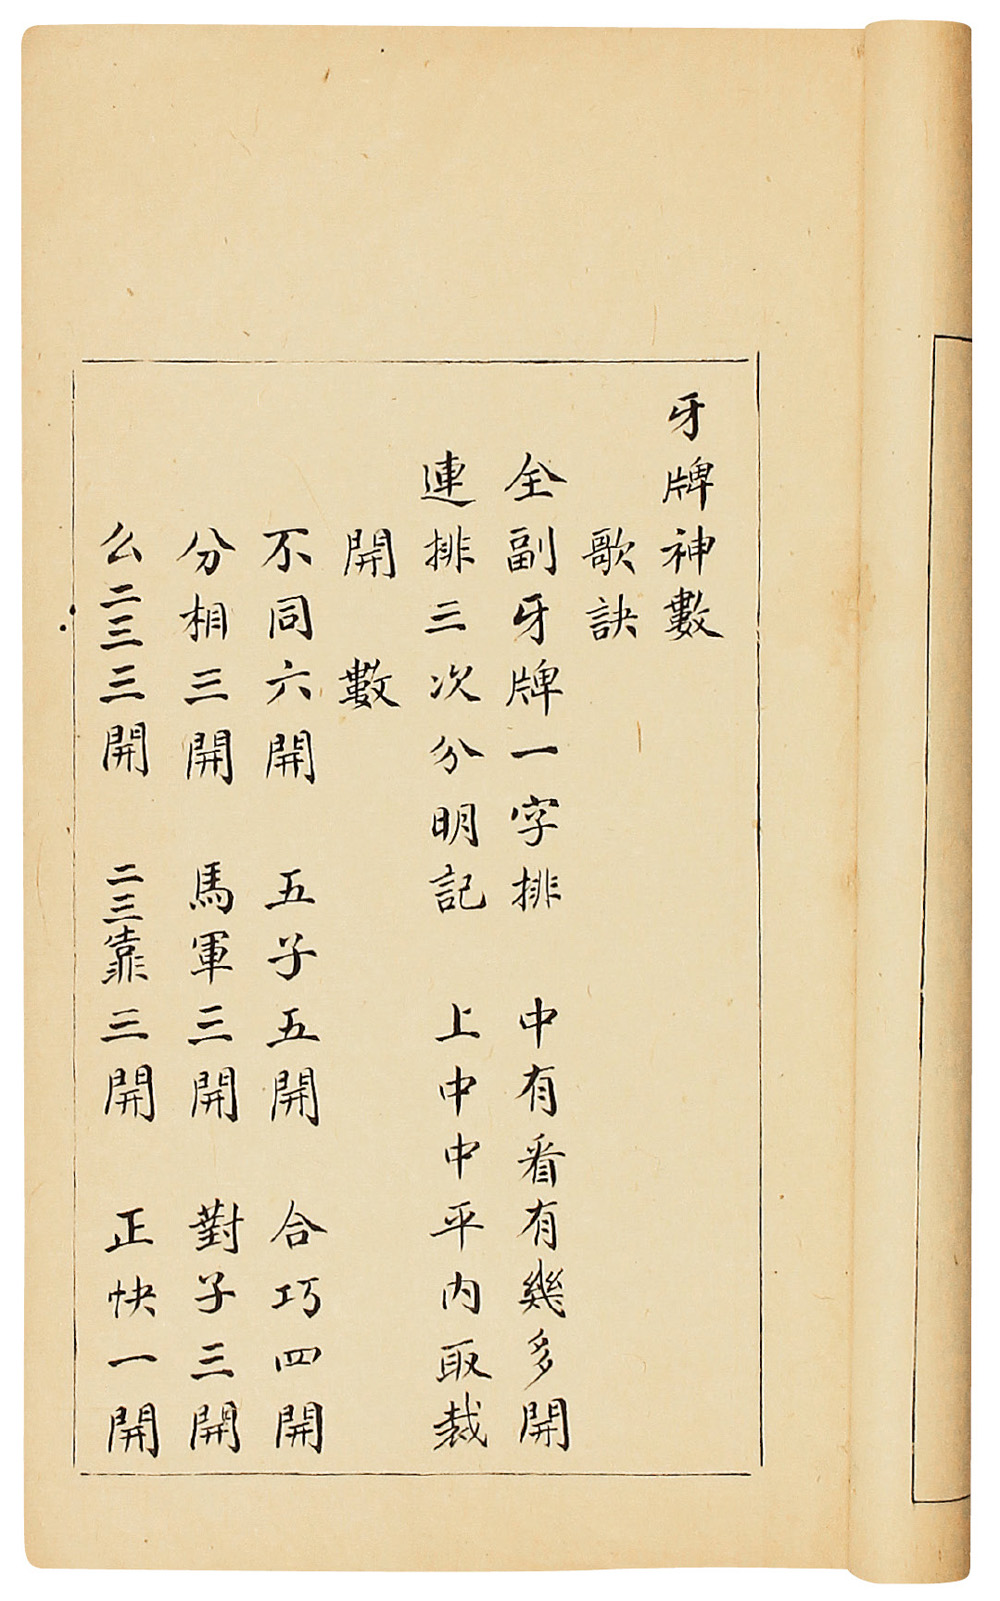 牙牌神數
歌訣
全副牙牌一字排　中有看有幾多開
連排三次分明記　上中中平內取裁
開　數
不同六開　五子五開　合巧四開
分相三開　馬軍三開　對子三開
么二三三開　二三靠三開　正快一開